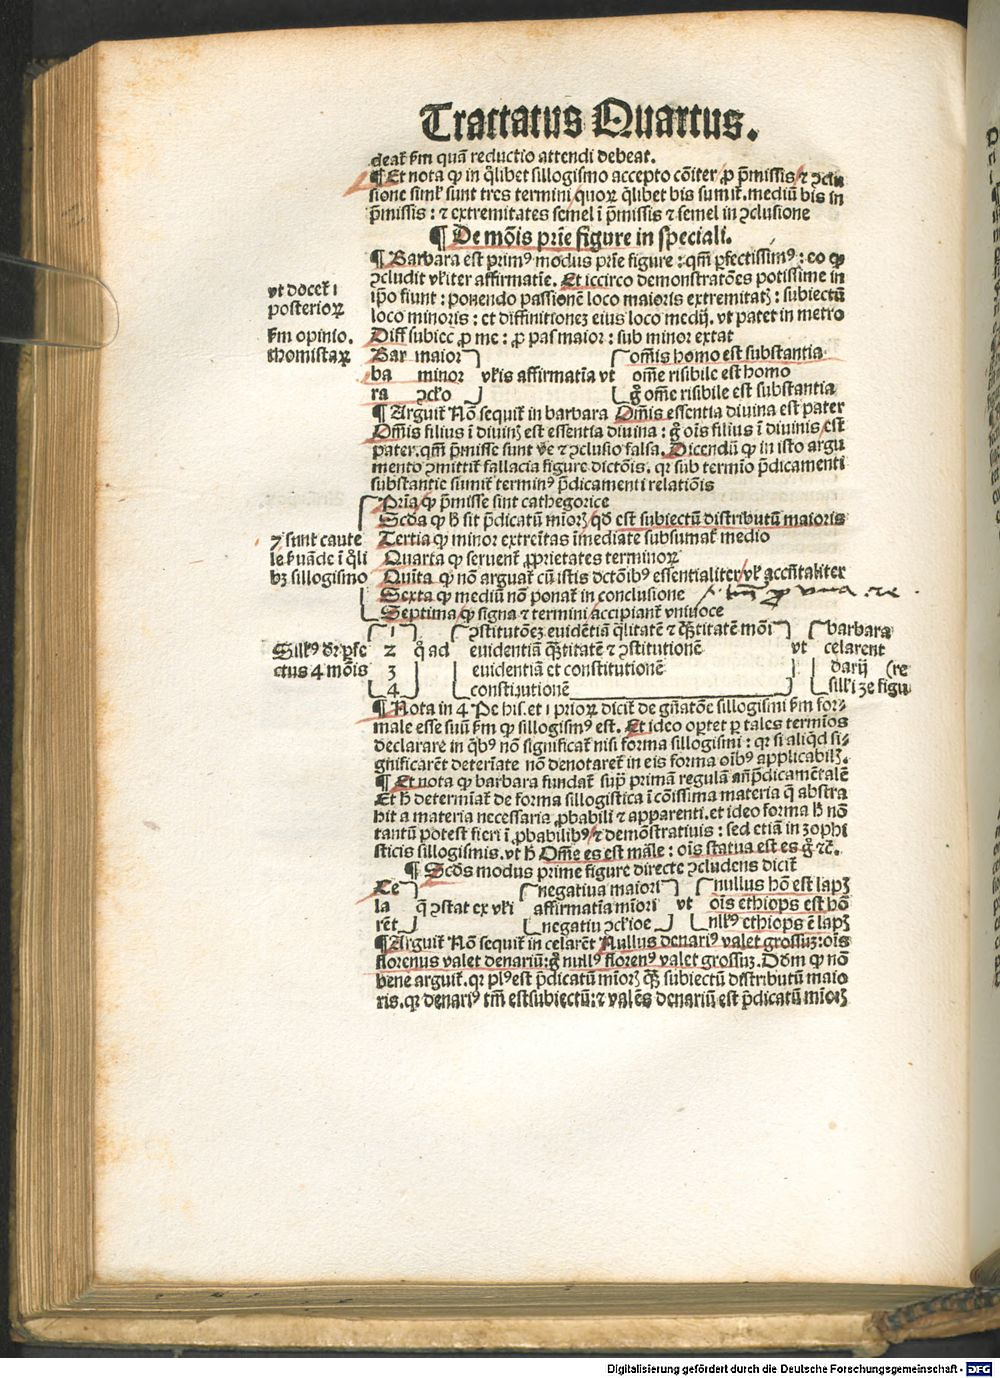 Tractatus Quartus.
deat̄ ẜm quā reductio attendi debeat.
¶ Et nota ꝙ in q̄libet sillogismo accepto cōiter / ꝓ p̄missis / ⁊ ꝯclu
sione siml̓ sunt tres termini / quoꝝ q̄libet bis sumit̄. mediū bis in
p̄missis : ⁊ extremitates semel ī p̄missis ⁊ semel in ꝯclusione
¶ De mōis prīe figure in speciali.
¶ Barbara est primꝰ modus prīe figure : qm̄ ꝑfectissimꝰ : eo ꝙ
ꝯcludit vl̓iter affirmatīe. Et iccirco demonstratōes potissime in
ip̄o fiunt : ponendo passionē loco maioris extremitatꝭ : subiectū
loco minoris : et diffinitionez eius loco medij. vt patet in metro
vt docet̄ 1
posterioꝝ
ẜm opinio.
thomistaꝝ
Diff subiec ꝓ me : ꝓ pas maior : sub minor extat
Bar maior
ba minor
ra ꝯcl̓o
vl̓is affirmatīa vt
om̄is homo est substantia
om̄e risibile est homo
g̊ om̄e risibile est substantia
¶ Arguit̄ Nō sequit̄ in barbara Om̄is essentia diuina est pater
Om̄is filius ī diuinꝭ est essentia diuina : g̊ oīs filius ī diuinis est
pater. qm̄ p̄misse sunt ve̓ ⁊ ꝯclusio falsa. Dicendū ꝙ in isto argu
mento ꝯmittit̄ fallacia figure dictōis. qꝛ sub termīo p̄dicamenti
substantie sumit̄ terminꝰ p̄dicamenti relatiōis
⁊ sunt caute
le ẜuāde ī q̄li
bꝫ sillogismo
Prīa / ꝙ p̄misse sint cathegorice
Scd̓a ꝙ h̄ sit p̄dicatū mīorꝭ / qd̓ est subiectū distributū maioris
Tertia ꝙ minor extreītas īmediate subsumat̄ medio
Quarta ꝙ seruent̄ ꝓprietates terminoꝝ
Quīta ꝙ nō arguat̄ cū istis dctōībꝰ essentialiter / vl̓ accn̄taliter
Sexta ꝙ mediū nō ponat̄ in conclusione
Septima / ꝙ signa ⁊ termini / accipiant̄ vniuoce
Sill̓ꝰ dr̄ ꝑfe
ctus 4 mōis
1
2
3
4
q̊ ad
ꝯstitutōeꝫ euidētiā q̄litatē ⁊ q̄ꝫtitatē mōi
euidentiā q̄ꝫtitatē ⁊ ꝯstitutionē
euidentiā et constitutionē
constitutionē
vt
barbara
celarent
darij (re
sill̓i 3e figu
¶ Nota in 4 Pe his. et 1 prioꝝ dicit̄ de gn̄atōe sillogismi ẜm for⸗
male esse suū ẜm ꝙ sillogismꝰ est. Et ideo oꝑtet ꝑ tales termīos
declarare in q̄bꝰ nō significat̄ nisi forma sillogismi : qꝛ si aliq̄d si⸗
gnificarēt deter̄iate nō denotaret̄ in eis forma oībꝰ applicabilꝭ.
¶ Et nota ꝙ barbara fundat̄ suꝑ primā regulā an̄p̄dicamētalē
Et h̄ determīat̄ de forma sillogistica ī cōissima materia q̄ abstra
hit a materia necessaria ꝓbabili ⁊ apparenti. et ideo forma h̄ nō
tantū potest fieri ī ꝓbabilibꝰ / ⁊ demōstratiuis : sed etiā in zophi
sticis sillogismis. vt h̄ Om̄e es est māle : oīs statua est es g̊ ⁊c̄.
¶ Scd̓s modus prime figure directe ꝯcludens dicit̄
Ce
la
rēt
q̄ ꝯstat ex vl̓i
negatiua maiori
affirmatīa mīori
negatiu ꝯcl̓ioe
vt
nullus hō est lapꝭ
oīs ethiops est hō
nll̓ꝰ ethiops ē lapꝭ
¶ Arguit̄ Nō sequit̄ in celarēt Nullus denariꝰ valet grossuꝫ : oīs
florenus valet denariū : g̊ nullꝰ florenꝰ valet grossuꝫ. Dd̓m ꝙ nō
bene arguit̄. qꝛ plꝰ est p̄dicatū mīorꝭ q̄ꝫ subiectū distributū maio
ris. qꝛ denariꝰ tm̄ est subiectū : ⁊ valēs denariū est p̄dicatū mīorꝭ
Digitalisierung gefördert durch die Deutsche Forschungsgemeinschaft - DFG